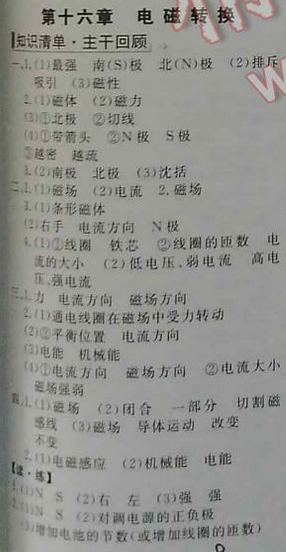 第十六章 电磁转换
知识清单·主干回顾
一、1.(1)最强 南(S)极 北(N)极 (2)排斥
吸引 (3)磁性
2.(1)磁体 (2)磁力
(3)①北极 ②切线
(4)①带箭头 ②N极 S极
③越密 越疏
3.(2)南极 北极 (3)沈括
二、1.(1)磁场 (2)电流 2.磁场
3.(1)条形磁体
(2)右手 电流方向 N极
4.(1)①线圈 铁芯 ②线圈的匝数 电
流的大小 (2)低电压、弱电流 高电
压、强电流
三、1.力 电流方向 磁场方向
2.(1)通电线圈在磁场中受力转动
(2)②平衡位置 电流方向
(3)电能 机械能
(4)①电流方向 磁场方向 ②电流大小
磁场强弱
四、1.(1)磁场 (2)闭合 一部分 切割磁
感线 (3)磁场 导体运动 改变
不变
2.(1)电磁感应 (2)机械能 电能
【读·练】
1.(1)N S (2)右 左 (3)强 强
2.(1)N S (2)对调电源的正负极
(3)增加电池的节数(或增加线圈的匝数)